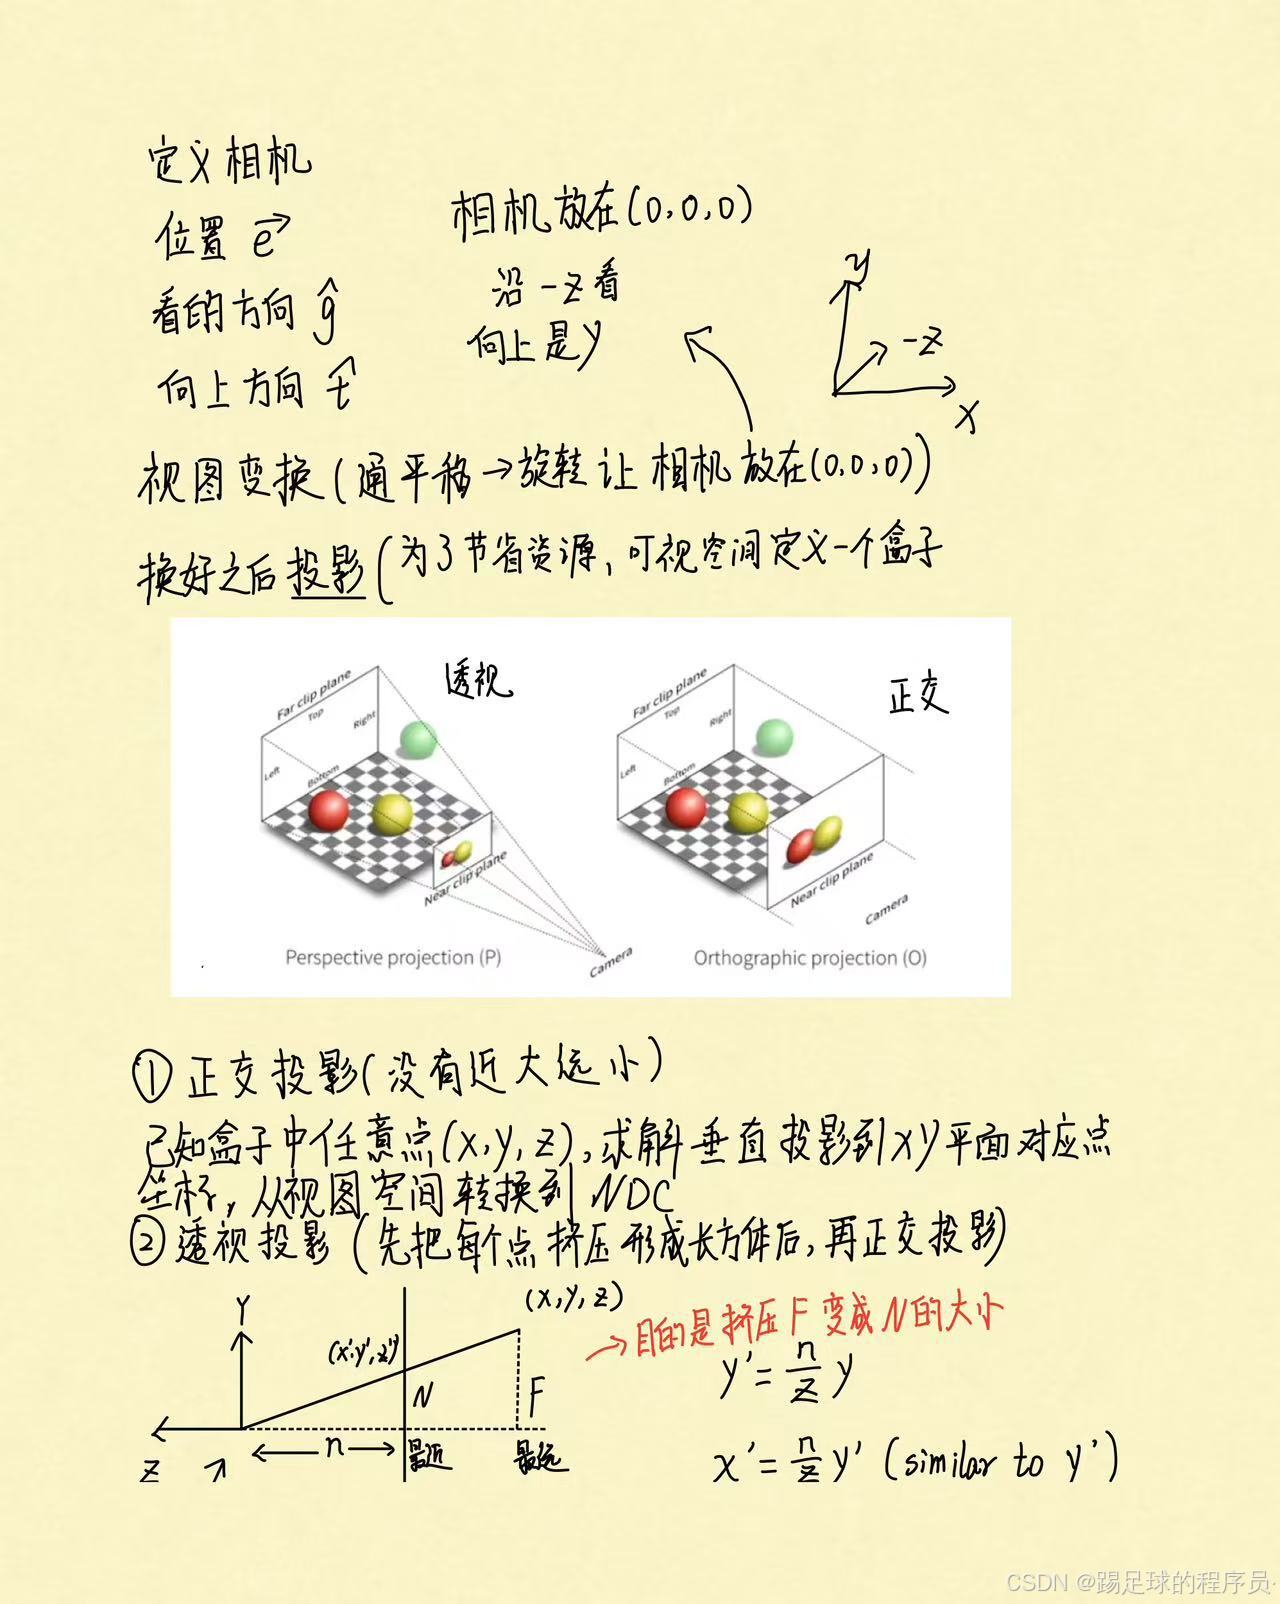 定义相机
位置 e→
看的方向 ĝ
向上方向 t̂
相机放在(0,0,0)
沿 -z 看
向上是y
y
-z
x
视图变换(通平移→旋转让相机放在(0,0,0))
换好之后投影(为了节省资源,可视空间定义一个盒子
透视
Far clip plane
Top
Right
Left
Bottom
Near clip plane
Camera
Perspective projection (P)
正交
Far clip plane
Top
Right
Left
Bottom
Near clip plane
Camera
Orthographic projection (O)
① 正交投影(没有近大远小)
已知盒子中任意点(x,y,z),求解垂直投影到xy平面对应点
坐标,从视图空间转换到NDC
② 透视投影(先把每个点挤压形成长方体后,再正交投影)
Y
(x,y,z)
(x',y',z')
N
F
Z
n
最近
最远
→目的是挤压F变成N的大小
y' = n/z y
x' = n/z y' (similar to y')
CSDN @踢足球的程序员